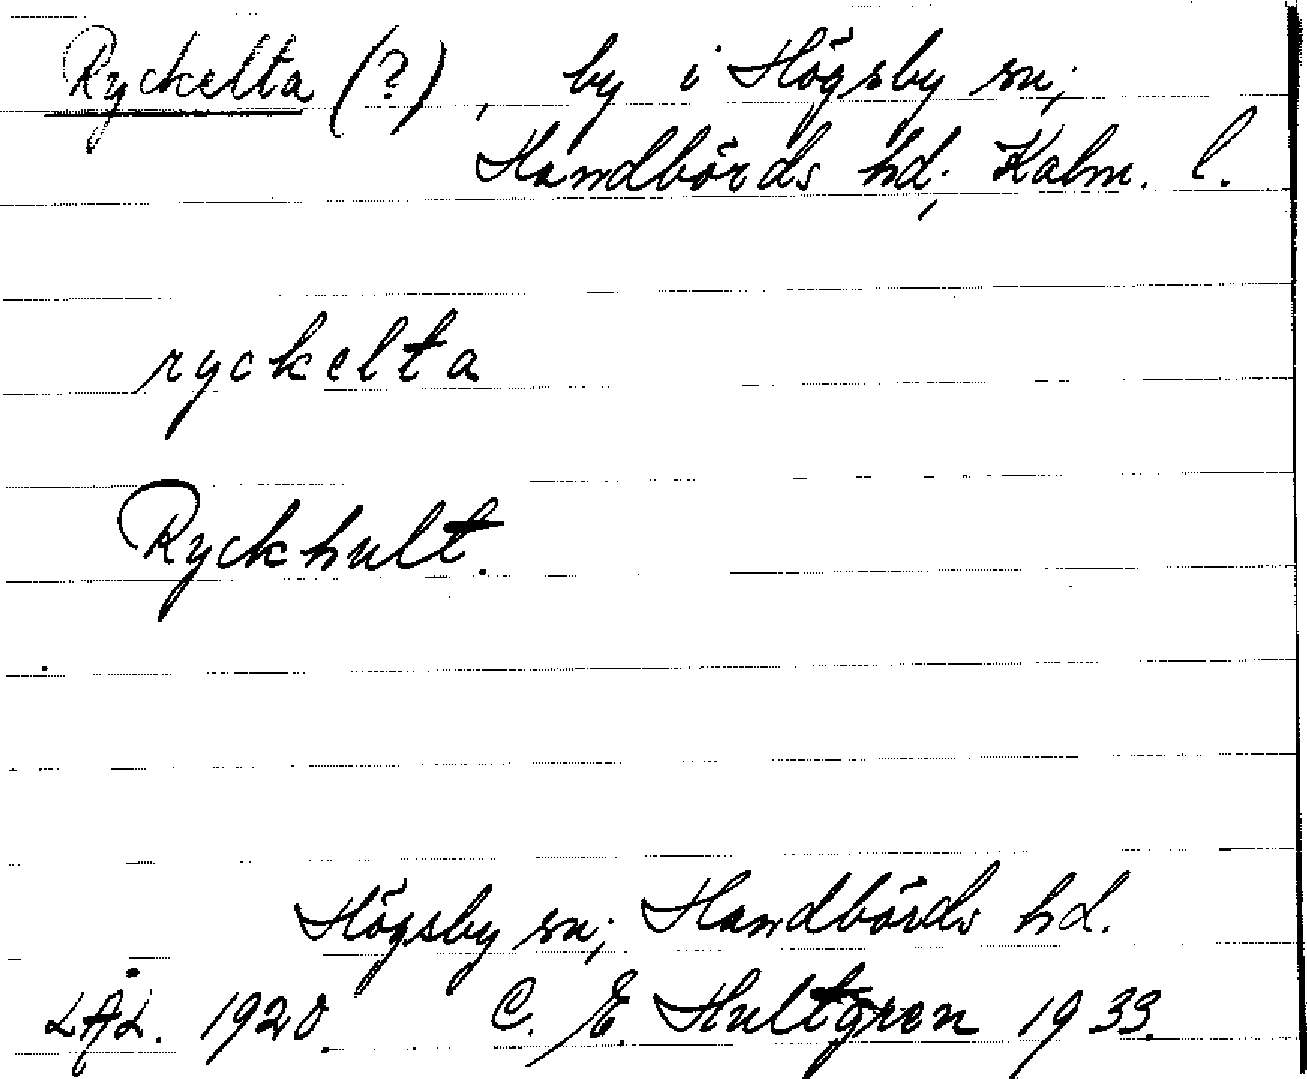 Ryckelta (?), by i Högsby sn;
Handbörds hd; Kalm. l.
ryckelta
Ryckhult.
Högsby sn; Handbörds hd.
1920. C. E. Hultgren 1933.